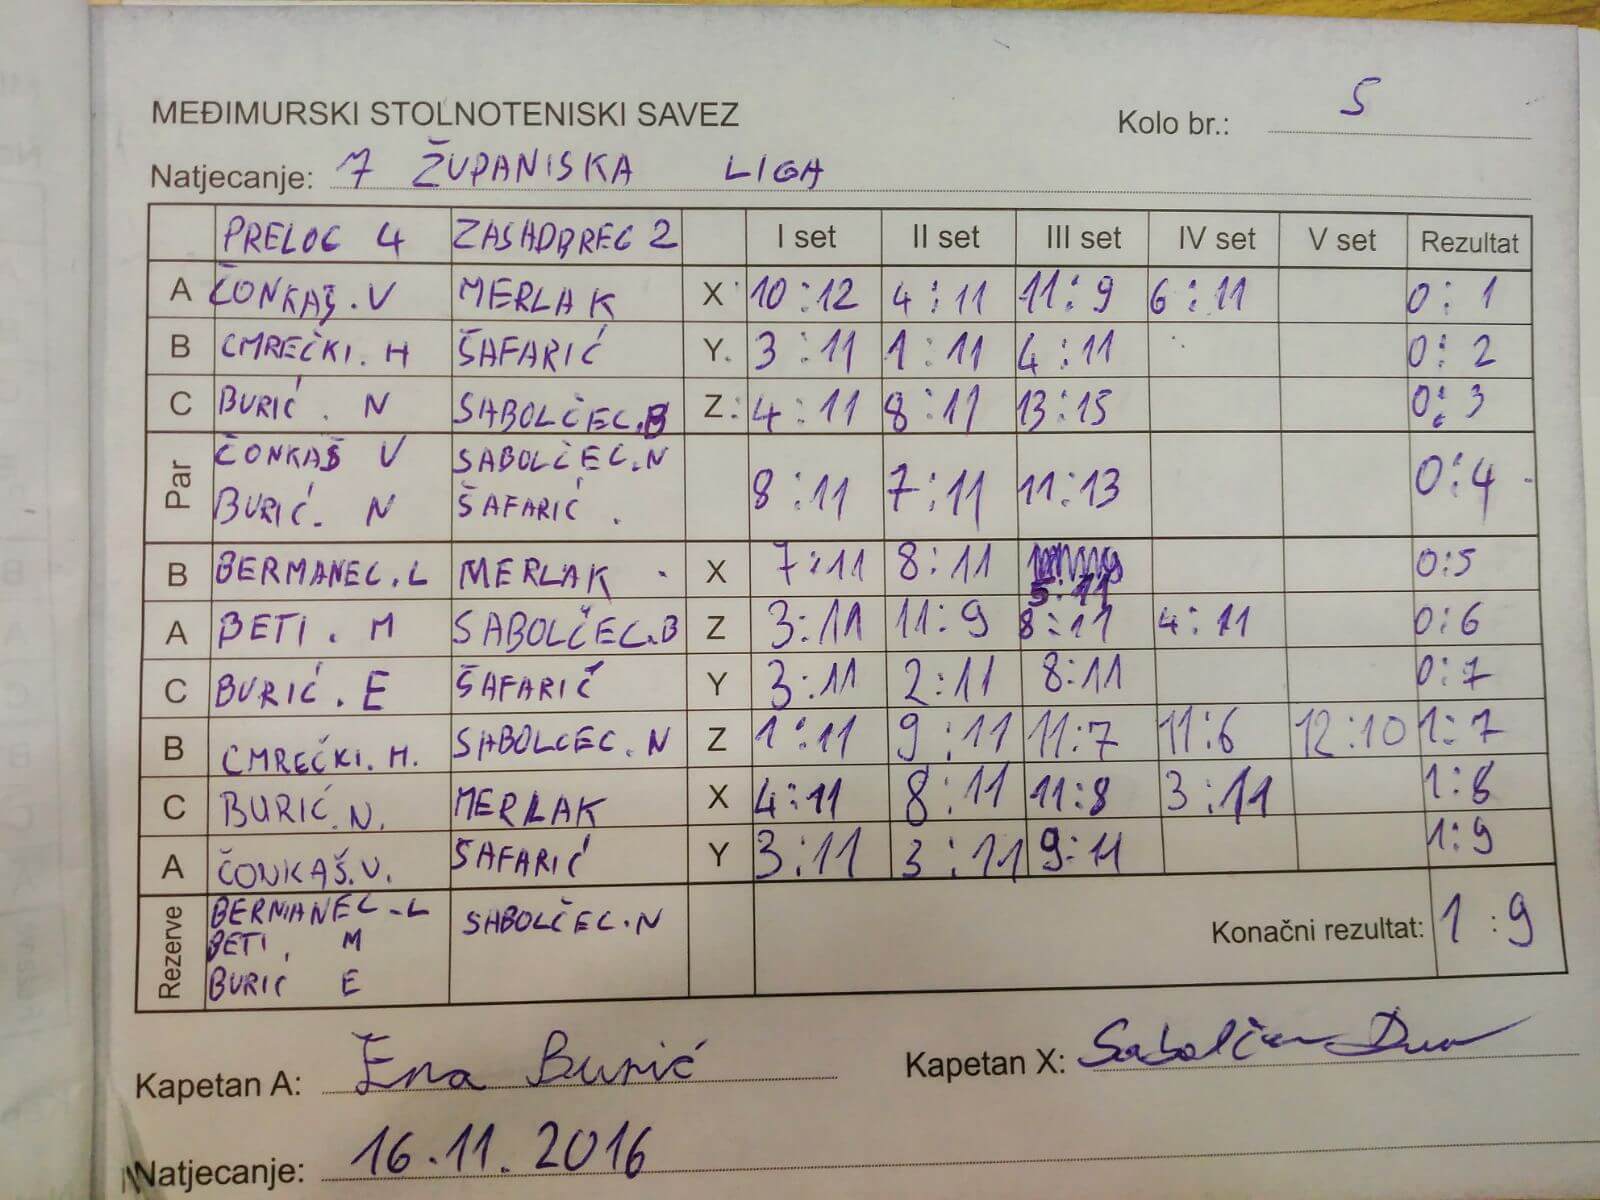 MEĐIMURSKI STOLNOTENISKI SAVEZ
Kolo br.: 5
Natjecanje: 7 ŽUPANISKA LIGA
PRELOG 4 ZASADBREG 2 I set II set III set IV set V set Rezultat
A ČONKAŠ.V MERLAK X 10:12 4:11 11:9 6:11 0:1
B CMREČKI.H ŠAFARIĆ Y 3:11 1:11 4:11 0:2
C BURIĆ. N SABOLČEC.B Z 4:11 8:11 13:15 0:3
Par ČONKAŠ V SABOLČEC.N
BURIĆ. N ŠAFARIĆ. 8:11 7:11 11:13 0:4
B BERMANEC.L MERLAK X 7:11 8:11 5:11 0:5
A BETI. M SABOLČEC.B Z 3:11 11:9 8:11 4:11 0:6
C BURIĆ. E ŠAFARIĆ Y 3:11 2:11 8:11 0:7
B CMREČKI. H. SABOLCEC. N Z 1:11 9:11 11:7 11:6 12:10 1:7
C BURIĆ. N. MERLAK X 4:11 8:11 11:8 3:11 1:8
A ČONKAŠ.V. ŠAFARIĆ Y 3:11 3:11 9:11 1:9
Rezerve BERMANEC-L SABOLČEC.N
BETI. M
BURIC E
Konačni rezultat: 1:9
Kapetan A: Ena Burić
Kapetan X: Sabolčec
Natjecanje: 16.11.2016